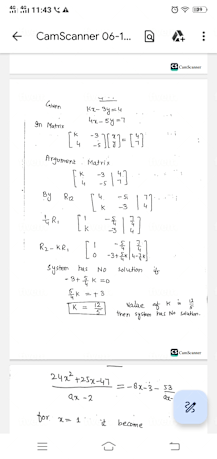 11:43
CamScanner 06-1...
CamScanner
Given
Kx-3y=4
4x-5y=7
In Matrix
[K -3 4 -5] [x y] = [4 7]
Argument Matrix
[K -3 | 4
4 -5 | 7]
By R12 [4 -5 | 7
K -3 | 4]
1/4 R1 [1 -5/4 | 7/4
K -3 | 4]
R2-KR1 [1 -5/4 | 7/4
0 -3+5/4K | 4-7/4K]
System has No solution if
-3+5/4 K=0
5/4 K = +3
K = 12/5 Value of K is 12/5
then system has No solution.
CamScanner
24x²+25x-47 / ax-2 = -8x-3- 53/ax-
for x=1 it become